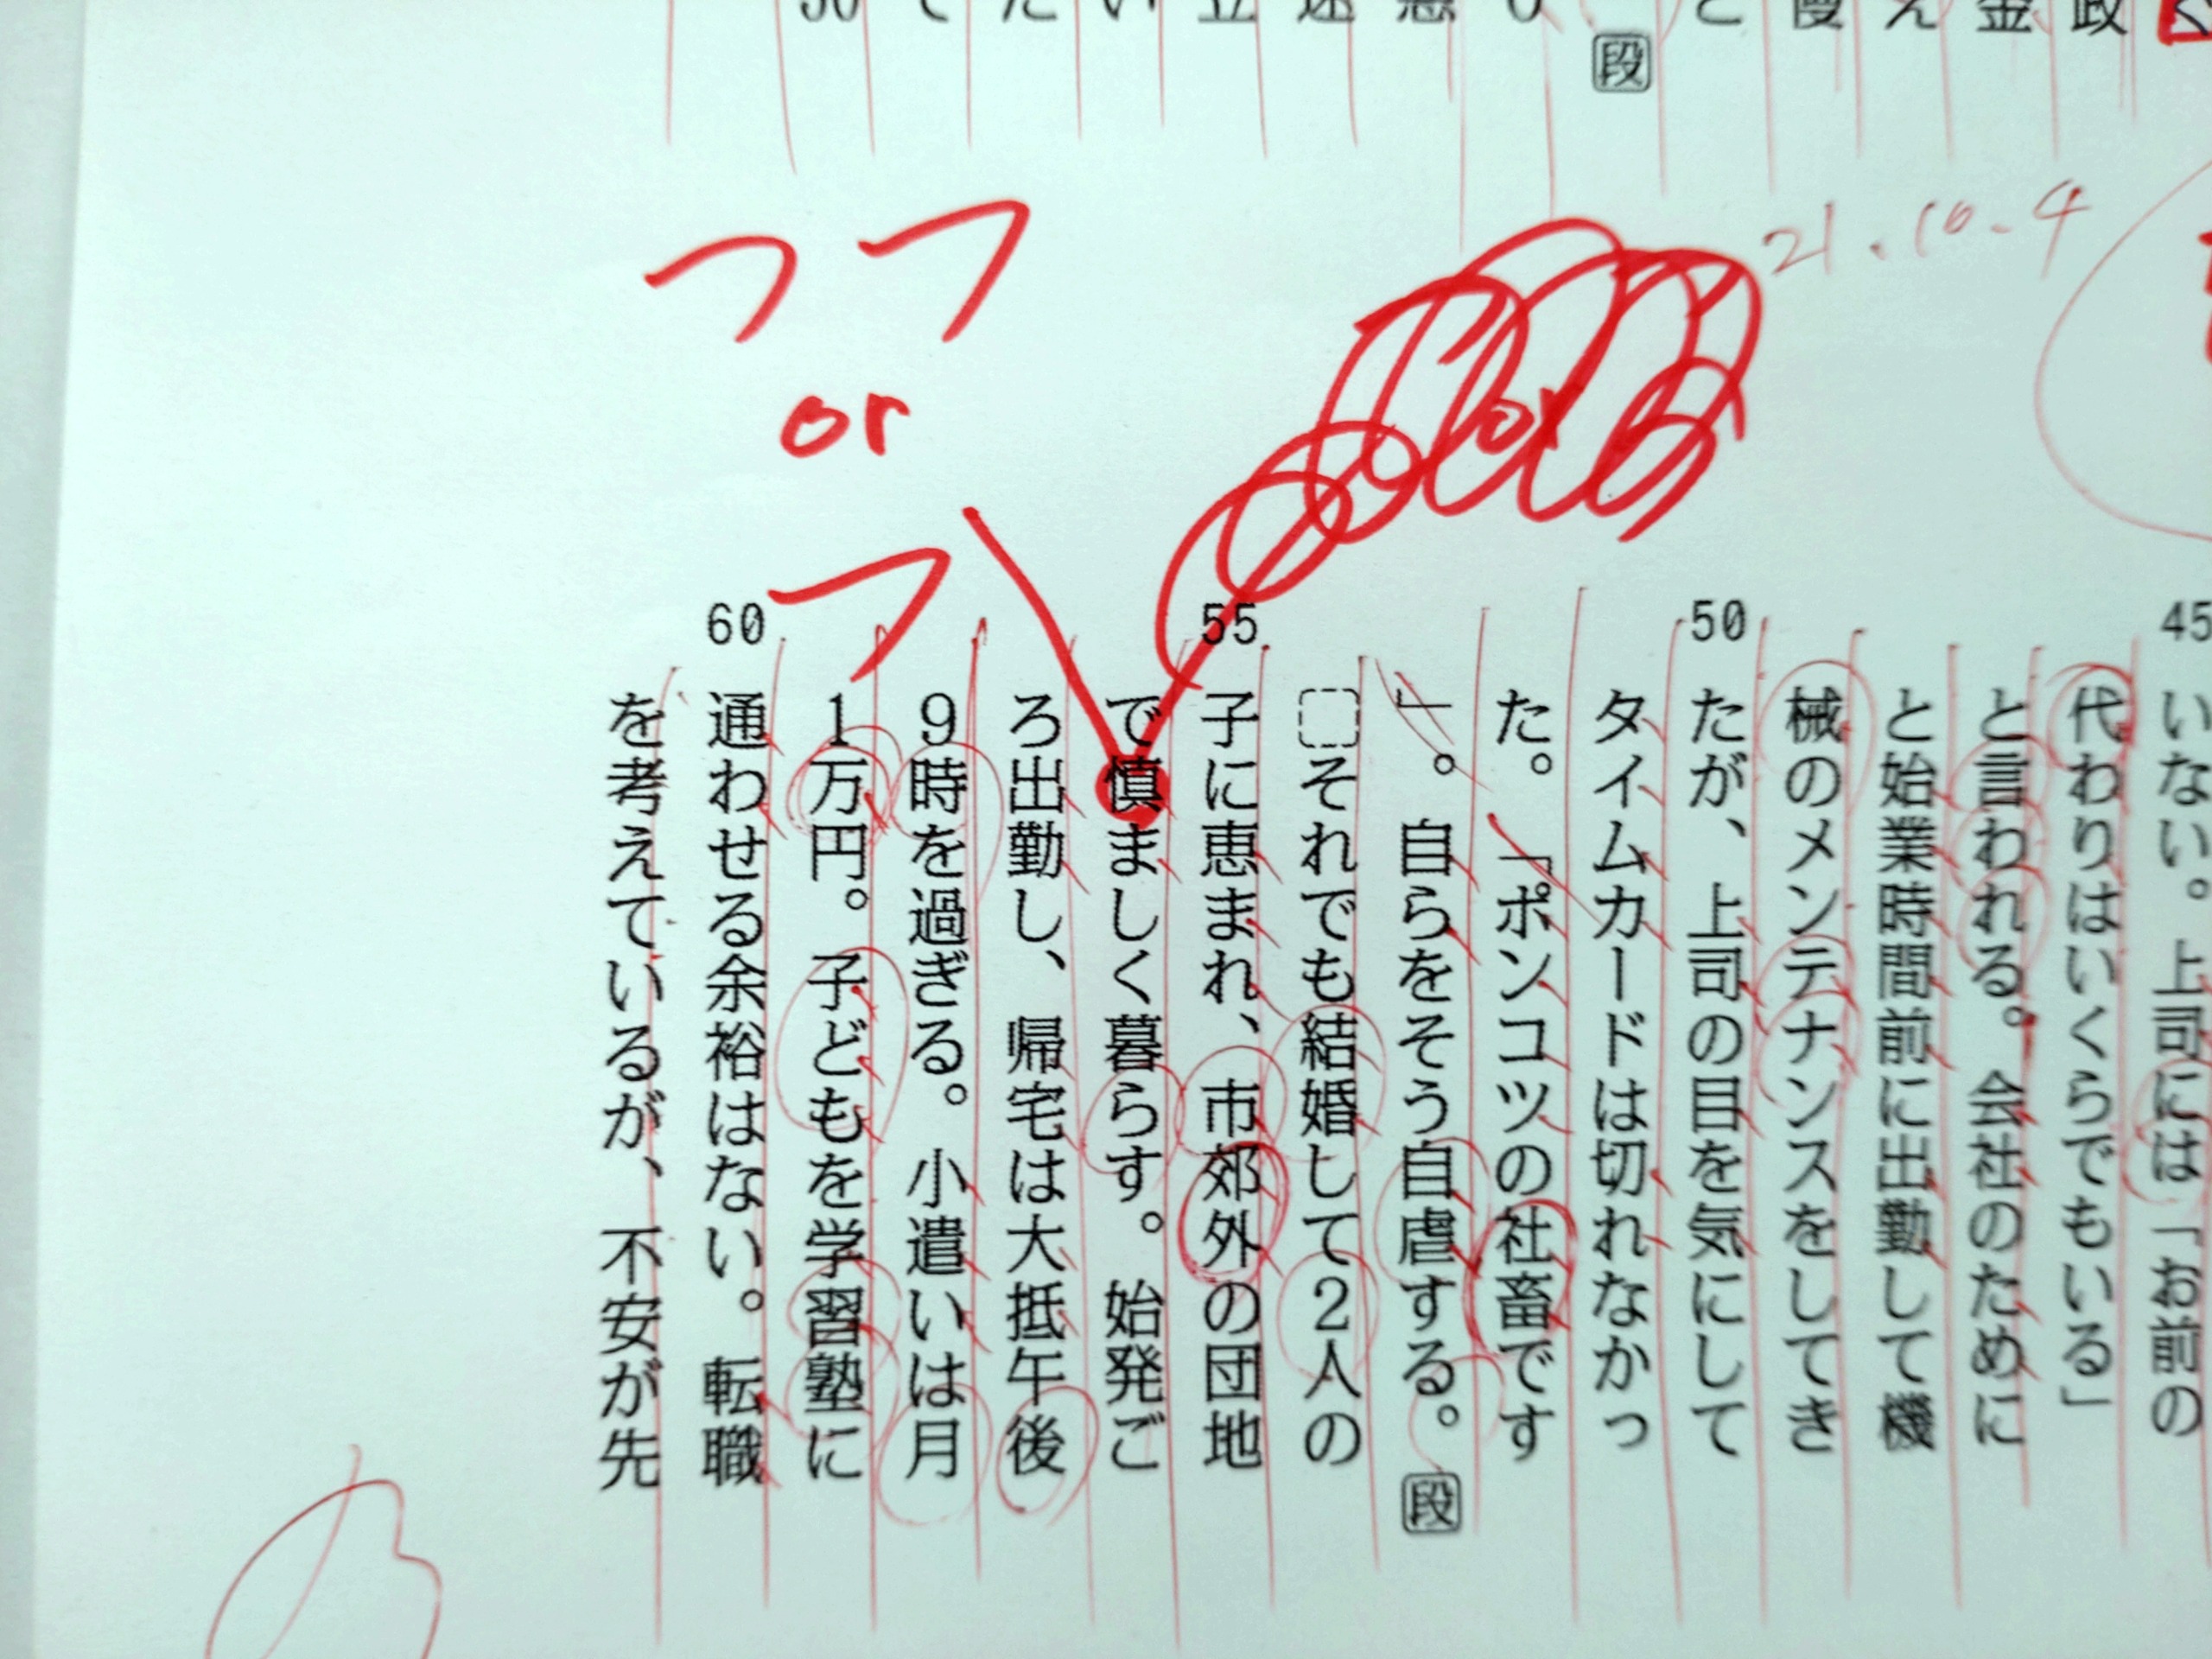 政
金
え
と
段
21.10.4
つつ
or
つ
45
いない。上司には「お前の
代わりはいくらでもいる」
と言われる。会社のために
と始業時間前に出勤して機
械のメンテナンスをしてき
50
たが、上司の目を気にして
タイムカードは切れなかっ
た。「ポンコツの社畜です
」。自らをそう自虐する。段
それでも結婚して2人の
55
子に恵まれ、市郊外の団地
で慎ましく暮らす。始発ご
ろ出勤し、帰宅は大抵午後
9時を過ぎる。小遣いは月
1万円。子どもを学習塾に
60
通わせる余裕はない。転職
を考えているが、不安が先